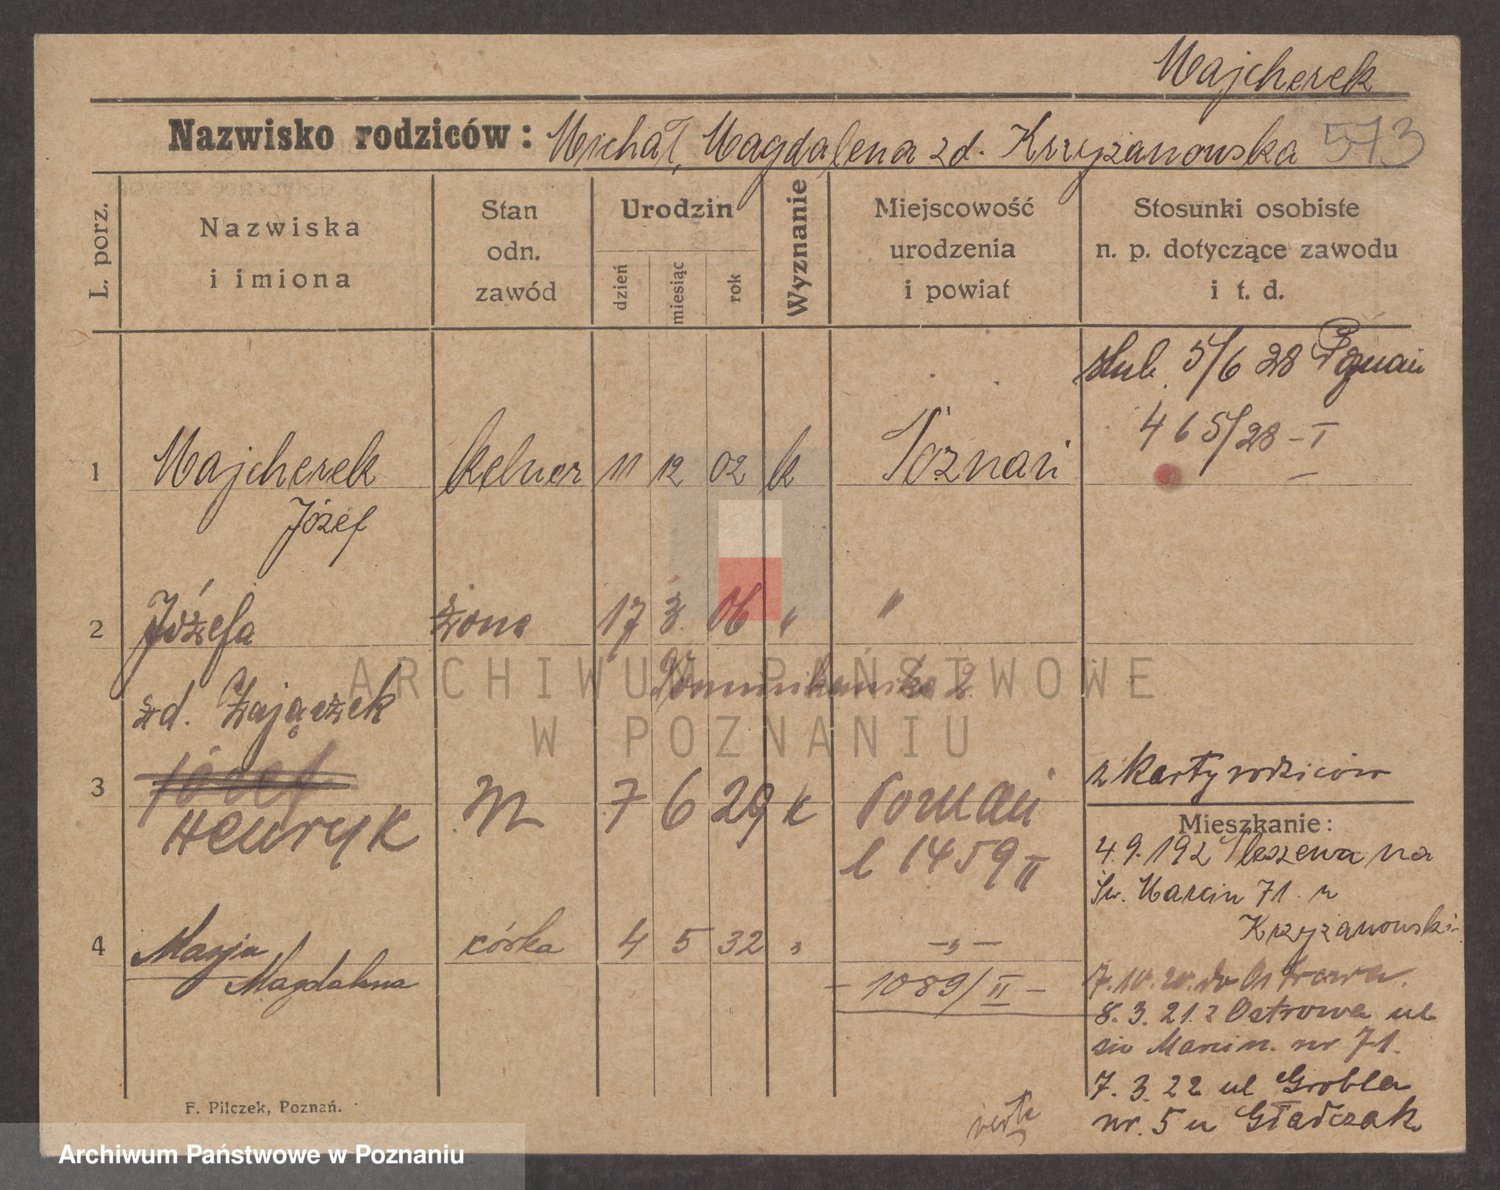 Majcherek
Nazwisko rodziców: Michał, Magdalena zd. Krzyżanowska 573
L. porz.
Nazwiska
i imiona
Stan
odn.
zawód
Urodzin
dzień
miesiąc
rok
Wyznanie
Miejscowość
urodzenia
i powiat
Stosunki osobiste
n. p. dotyczące zawodu
i t. d.
ślub 5/6 28 Poznań
465/28 - I
1 Majcherek kelner 11 12 02 k Poznań
Józef
2 Józefa żona 17 3 06 " "
zd. Zajączek
Dominikańska 2
3 Józef
Henryk m 7 6 29 k Poznań
l 1459 II
z karty rodziców
Mieszkanie:
4.9.192 Pleszewa na
Św. Marcin 71. u
Krzyżanowski
4 Marja córka 4 5 32 " —"—
Magdalena
- 1089/II -
7.10.20. do Ostrowa.
8.3.21. z Ostrowa ul
św Marcin. nr 71.
7.3.22 ul Grobla
nr. 5 u Gładczak
F. Pilczek, Poznań.
ARCHIWUM PAŃSTWOWE
W POZNANIU
Archiwum Państwowe w Poznaniu